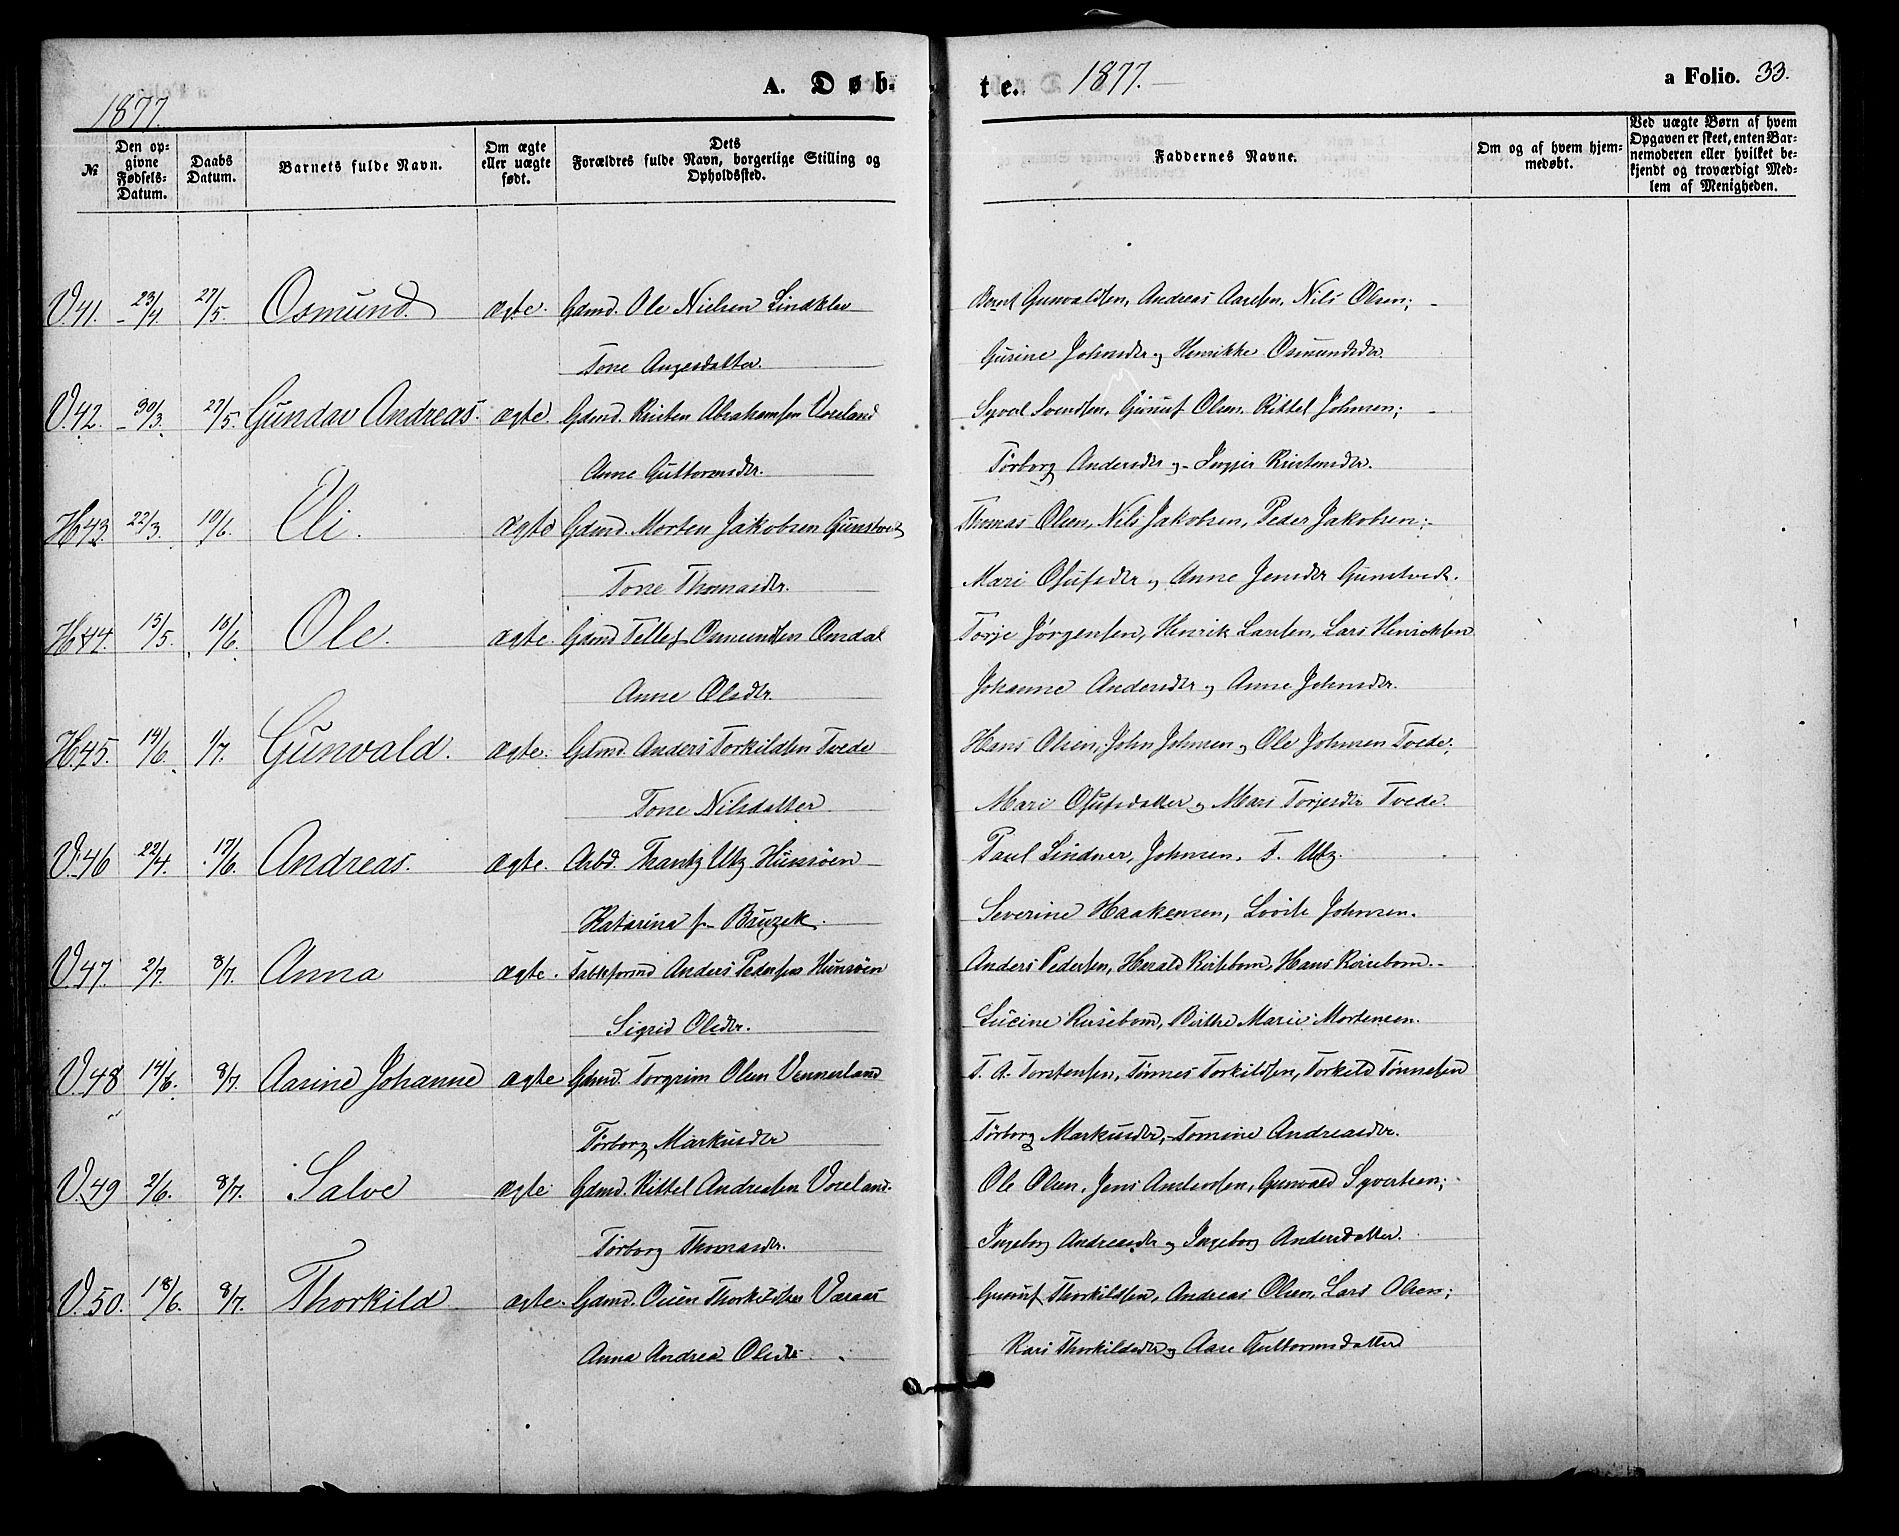 A. Døb-
te. 1877.
a Folio. 33.
1877.
№
Den op-
givne
Fødsels-
Datum.
Daabs
Datum.
Barnets fulde Navn.
Om ægte
eller uægte
født.
Dets
Forældres fulde Navn, borgerlige Stilling og
Opholdssted.
Faddernes Navne.
Om og af hvem hjem-
medøbt.
Ved uægte Børn af hvem
Opgaven er skeet, enten Bar-
nemoderen eller hvilket be-
kjendt og troværdigt Med-
lem af Menigheden.
V.41. 23/4. 27/5. Osmund. ægte. Gdmd. Ole Nielsen Lindklev Gunvaldsen, Andreas Aanesen, Nils Olsen;
Tone Aagesdatter. Gurine Johnsdtr og Henrikke Osmundsdtr
V.42. 30/3. 27/5. Gundar Andreas. ægte. Gdmd. Kristen Abrahamsen Voreland Syvert Svendsen, Gunuf Olsen, Kittel Johnsen;
Anne Guttormsdtr. Torborg Andersdtr og Kristensdtr.
H.43. 22/3. 10/6. Eli. ægte Gdmd. Morten Jakobsen Gunstvedt Thomas Olsen, Nils Jakobsen, Peder Jakobsen;
Tone Thomasdtr. Mari Osufsdtr og Anne Jensdtr Gunstvedt.
H.44. 15/5. 10/6. Ole. ægte. Gdmd Tellef Osmundsen Omdal Torje Jørgensen, Henrik Larsen, Lars Henricksen
Anne Olsdtr. Johanne Andersdtr og Anne Johnsdtr.
H.45. 14/6. 1/7. Gunvald. ægte. Gdmd. Anders Torkildsen Tvede Hans Olsen, John Johnsen og Ole Johnsen Tvede;
Tone Nilsdatter Mari Osufsdatter og Mari Torjesdtr Tvede.
V.46 22/4. 17/6. Andreas. ægte. Arbd. Frantz Utz Hunsøen Paul Lindner, Johnsen, F. Utz.
Katarina f. Bruzek. Severine Haakensen, Johnsen.
V.47. 2/7. 8/7. Anna ægte. Anders Pedersen Hunsøen Anders Pedersen, Harald Reisebom, Hans Reisebom.
Sigrid Olsdtr. Lucine Reisebom, Birthe Marie Mortensen.
V.48 14/6. 8/7. Aasine Johanne ægte Gdmd. Torgrim Olsen Vennerland T. A. Torstensen, Tønnes Torkildsen, Torkild Tønnesen
Torborg Markusdtr Torborg Markusdtr, Tomine Andreasdtr.
V.49 2/6. 8/7. Salve ægte Gdmd. Kittel Andreasen Voreland. Ole Olsen, Jens Andersen, Gunvald Syvertsen;
Torborg Thomasdtr. Ingeborg Andreasdtr og Ingeborg Andersdatter.
V.50. 18/6. 8/7. Thorkild ægte. Gdmd. Ouen Thorkildsen Vaaraas Gunuf Thorkildsen, Andreas Olsen, Lars Olsen;
Anna Andrea Olsdtr. Kari Thorkildsdtr og Aase Guttormsdatter